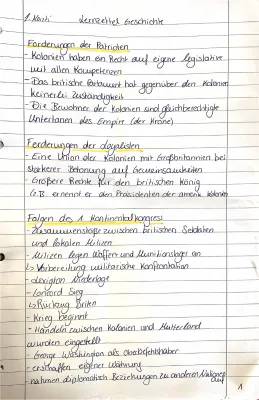 1. Konti Lernzettel Geschichte
Forderungen der Patrioten
- Kolonien haben ein Recht auf eigene Legislative
mit allen Kompetenzen
- Das britische Parlament hat gegenüber den Kolonien
keinerlei Zuständigkeit
- Die Bewohner der Kolonien sind gleichberechtigte
Untertanen des Empire (der Krone)
Forderungen der Loyalisten
- Eine Union der Kolonien mit Großbritannien bei
stärkerer Betonung auf Gemeinsamkeiten
- Größere Rechte für den britischen König
(z.B. ernennt er den Präsidenten der amerik. Kolonien
Folgen des 1 Kontinentalkongress
- Zusammenstöße zwischen britischen Soldaten
und lokalen Milizen
- Milizen legen Waffen und Munitionslager an
↳ Vorbereitung militärische Konfrontation
- Lexington Niederlage
- Concord Sieg
↳ Rückzug Briten
- Krieg beginnt
- Handeln zwischen Kolonien und Mutterland
wurden eingestellt
- George Washington als Oberbefehlshaber
- erschaffen eigener Währung
- nahmen diplomatisch Beziehungen zu anderen Nationen
auf
1